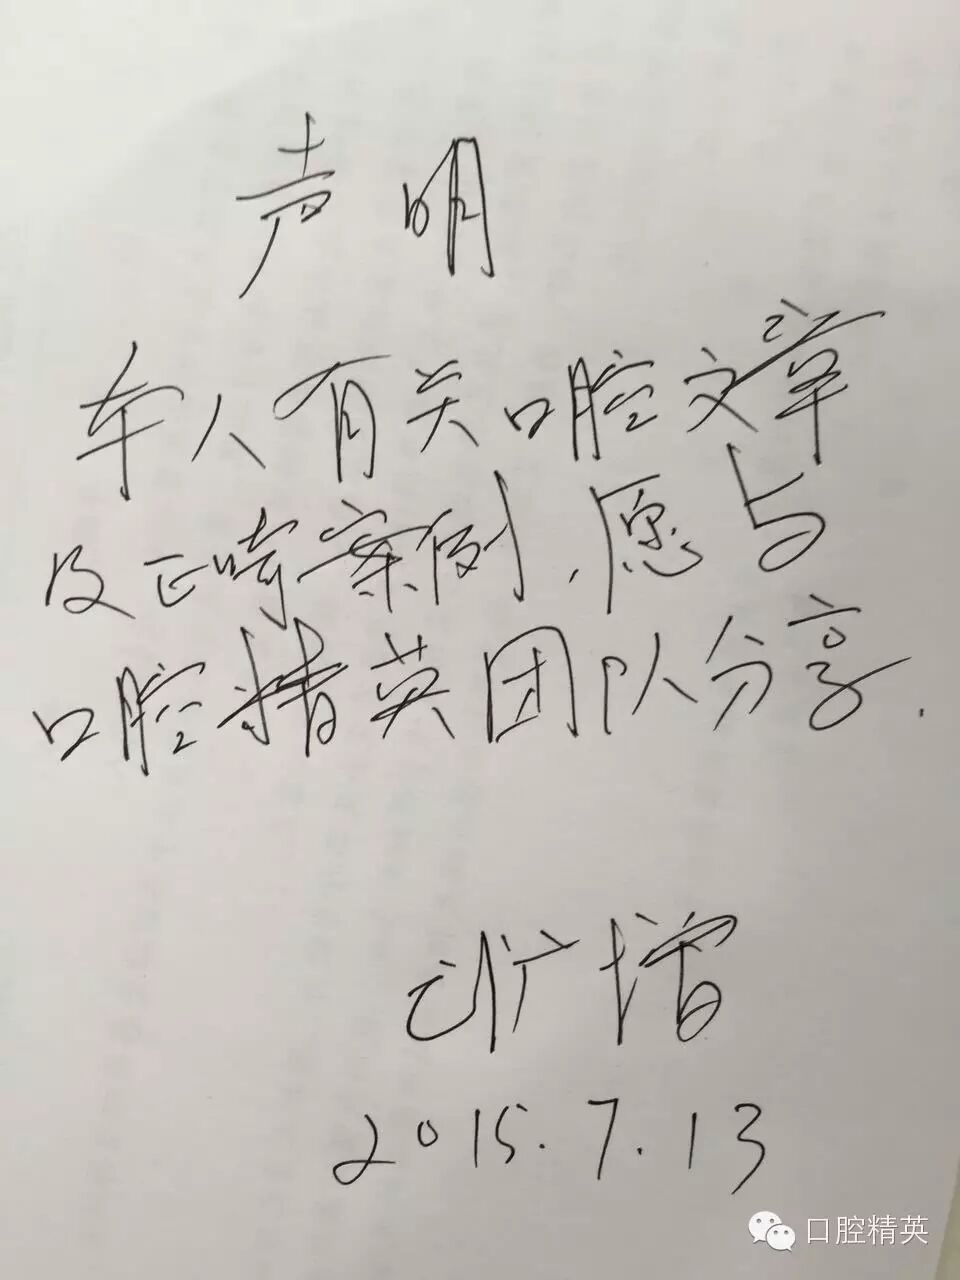 声明
本人有关口腔文章
及正畸案例,愿与
口腔精英团队分享.
增
2015.7.13
口腔精英